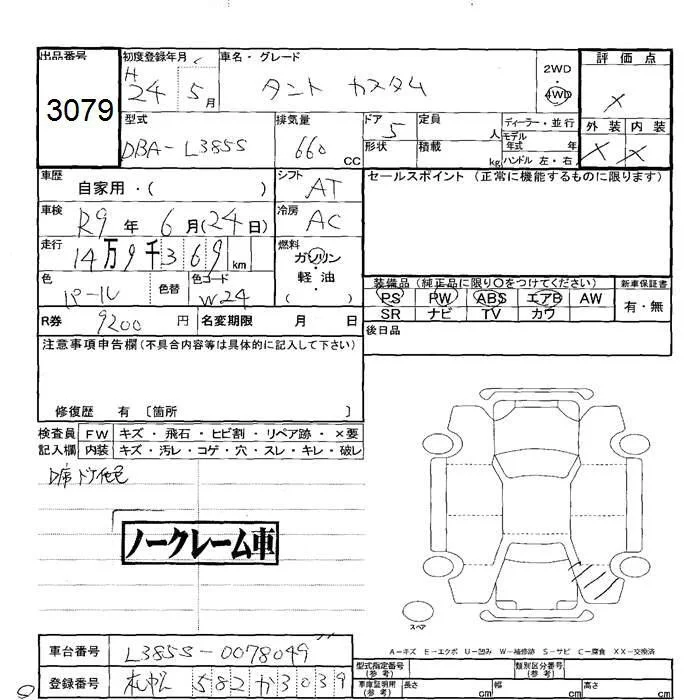 出品番号 3079
初度登録年月 H 24 年 5 月
車名・グレード タント カスタム
2WD
4WD
評価点 ×
外装 内装
× ×
型式 DBA-L385S
排気量 660 cc
ドア 5
形状
定員 人
積載 kg
ディーラー・並行
モデル年式 年
ハンドル 左・右
車歴 自家用・( )
シフト AT
セールスポイント (正常に機能するものに限ります)
車検 R9 年 6 月(24日)
冷房 AC
走行 14万9千369 km
燃料 ガソリン
軽・油
( )
色 パール
色替
色コード W24
装備品 (純正品に限り○をつけてください)
新車保証書
PS PW ABS エアB AW
有・無
SR ナビ TV カワ
R券 9200 円
名変期限 月 日
後日品
注意事項申告欄(不具合内容等は具体的に記入して下さい)
修復歴 有 〔箇所 〕
検査員 FW キズ・飛石・ヒビ割・リペア跡・×要
記入欄 内装 キズ・汚レ・コゲ・穴・スレ・キレ・破レ
D席ドア他色
ノークレーム車
スペア
A-キズ E-エクボ U-凹み W-補修跡 S-サビ C-腐食 XX-交換済
車台番号 L385S-0078049
登録番号 札幌 582 か 3039
型式指定番号 (参考)
類別区分番号 (参考)
車庫証明用 (参考) 長さ cm 幅 cm 高さ cm